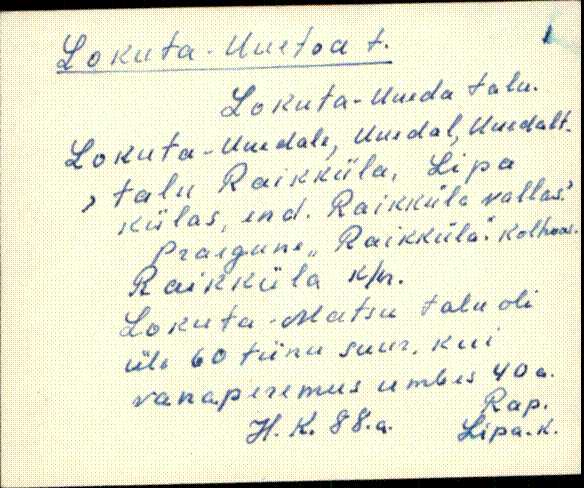 Lokuta-Uuetoa t.
Lokuta-Uueda talu.
Lokuta-Uuedale, Uuedal, Uuedalt.
, talu Raikküla, Lipa
külas, end. Raikküla vallas.
Praegune „Raikküla" kolhoos.
Raikküla k/n.
Lokuta-Matsu talu oli
üle 60 tiinu suur, kui
vanaperemus umbes 40 a.
Rap.
H. K. 88.a. Lipa.k.